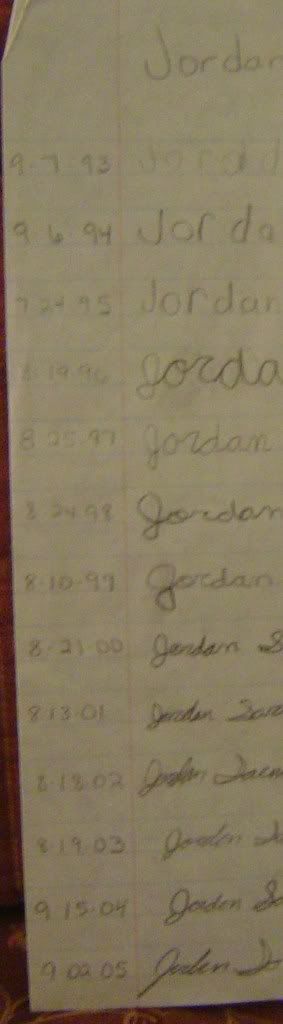 Jordan
9-7-93 Jord
9 6 94 Jor da
7 24 95 Jordan
8 19 96 Jorda
8 25 97 Jordan
8 24 98 Jordan
8-10-99 Jordan
8-21-00 Jordan S
8 13-01 Jordan
8-18-02 Jordan
8-19-03 Jordan
9 15-04 Jordan
9 02 05 Jordan